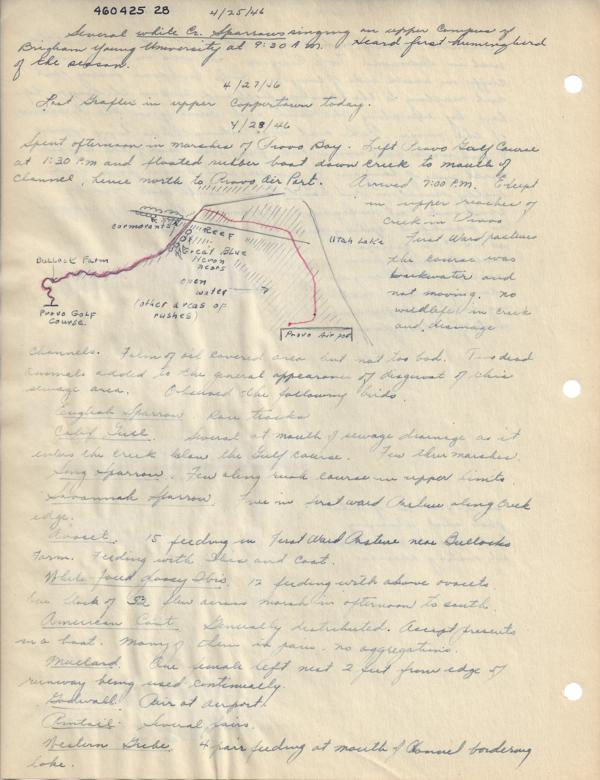 460425 28
4/25/46
Several white Cr. Sparrows singing on upper Campus of
Brigham Young University at 9:30 A.M. Heard first humingbird
of the season.
4/27/46
Last Grafter in upper Coppertown today.
4/28/46
Spent afternoon in marshes of Provo Bay. Left Provo Golf Course
at 1:30 P.M and floated rubber boat down creek to mouth of
Channel, hence north to Provo Air Port. Arrived 7:00 P.M. Except
in upper reaches of
creek in Provo
First Ward pastures
the course was
backwater and
not moving. no
wildlife in creek
and drainage
cormorants
Reef
Great Blue
Heron
nests
Utah Lake
Bullock Farm
open
water
(other areas of
rushes)
Provo Golf
Course.
Provo Airport
channels. Film of oil covered area but not too bad. Two dead
animals added to the general appearance of disgust of this
sewage area. Observed the following birds.
English Sparrow. Race tracks
Calif Gull. Several at mouth of sewage drainage as it
enters the creek below the Golf course. Few thru marshes.
Song Sparrow. Few along creek course in upper limits.
Savannah Sparrow. Five in first ward Pasture along creek
edge.
Avocet. 15 feeding in First Ward Pasture near Bullocks
Farm. Feeding with Ibis and Coot.
White-faced Glossy Ibis 12 feeding with above avocets
flock of 53 flew across marsh in afternoon to south.
American Coot. Generally distributed. Accept presents
in a boat. Many of them in pairs. no aggregations.
Mallard. One female left nest 2 feet from edge of
runway being used continually.
Gadwall. Pair at airport.
Pintail. Several pairs.
Western Grebe. 4 pair feeding at mouth of Channel bordering
lake.